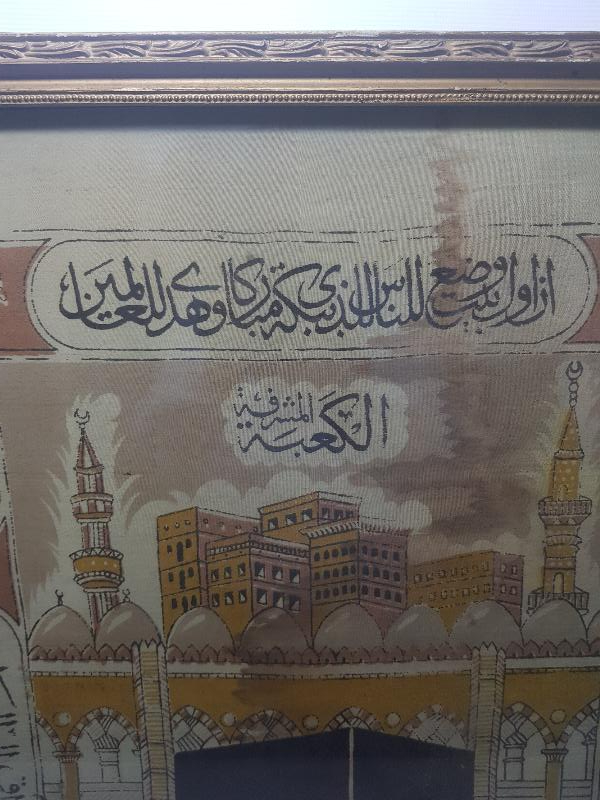 ان اول بيت وضع للناس للذي ببكة مباركا وهدى للعالمين
الكعبة المشرفة